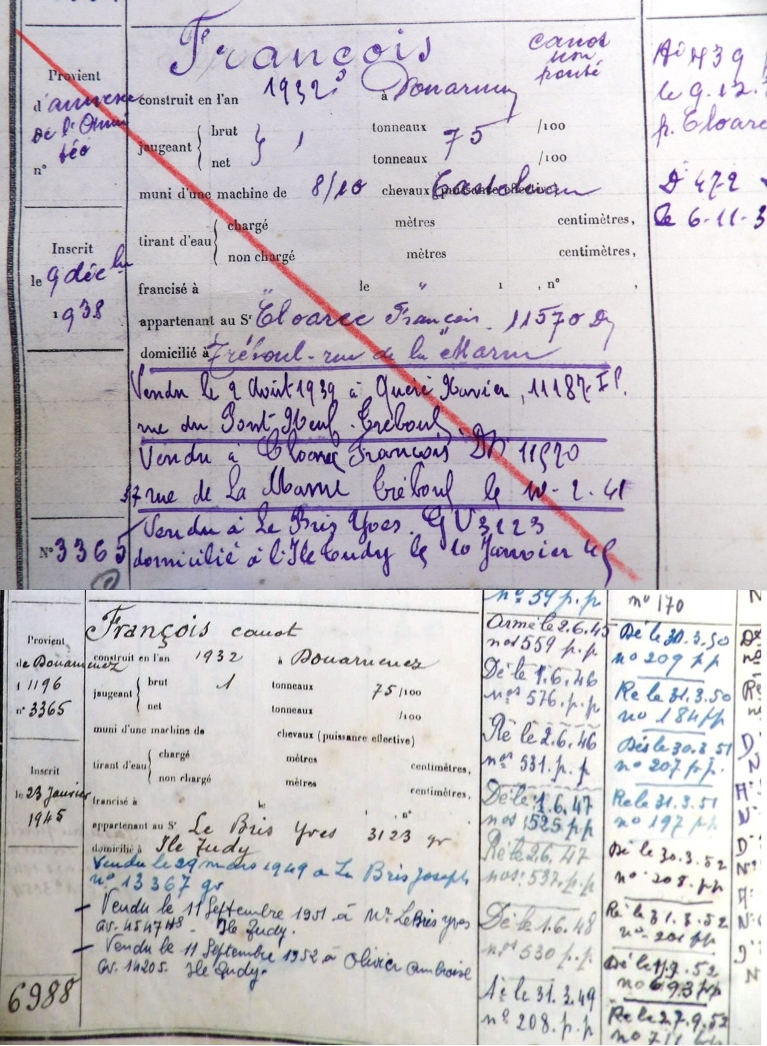 François
canot
non
ponté
Provient
d'annexe
de l'Omni
téo
n°
construit en l'an 1932 à Douarnenez
jaugeant { brut } 1 tonneaux 75 /100
net tonneaux /100
muni d'une machine de 8/10 chevaux
tirant d'eau { chargé mètres centimètres,
non chargé mètres centimètres,
Inscrit
le 9 déc
1938
francisé à " le " 1 , n° ,
appartenant au Sr Cloarec François 11570 Dz
domicilié à Tréboul - rue de la Marne
Vendu le 2 Août 1939 à Quéré Xavier, 11187 IP.
rue du Pont-Neuf. Tréboul
Vendu à Cloarec François DN 11570
37 rue de La Marne Tréboul le 10-2-41
Vendu à Le Bris Yves. GV 3123
domicilié à l'Ile Tudy le 10 Janvier 45
N° 3365
Aé 439
le 9.12.
p. Cloarec
Dé 472
le 6-11-3
François canot
Provient
de Douarnenez
1196
n° 3365
construit en l'an 1932 à Douarnenez
jaugeant { brut 1 tonneaux 75 /100
net tonneaux /100
muni d'une machine de chevaux (puissance effective)
tirant d'eau { chargé mètres centimètres,
non chargé mètres centimètres,
Inscrit
le 23 Janvier
1945
francisé à le , n°
appartenant au Sr Le Bris Yves 3123 gv
domicilié à Ile Tudy
Vendu le 29 mars 1949 à Le Bris Joseph
n° 13367 gv
– Vendu le 11 Septembre 1951 à Le Bris Yves
gv. 4547 Ile Tudy.
– Vendu le 11 Septembre 1952 à Olivier Ambroise
gv. 14205. Ile Tudy.
6988
n° 59 p.p
Armé le 2.6.45
n° 559 p.p
Dé le 1.6.46
n° 576. p.p
Ré le 2.6.46
n° 531. p.p
Dé le 1.6.47
n° 525 p.p
Ré le 2.6.47
n° 537. p.p
Dé le 1.6.48
n° 530 p.p
Aé le 31.3.49
n° 208. p.p
n° 170
Dé le 30.3.50
n° 209 pp
Ré le 31.3.50
n° 184 pp
Dés le 30.3.51
n° 207 p.p.
Ré le 31.3.51
n° 197 p.p
Dé le 30.3.52
n° 208. pp
Ré le 31.3.52
n° 201 pp
n° 693 pp
Ré le 27.9.52
n° 711